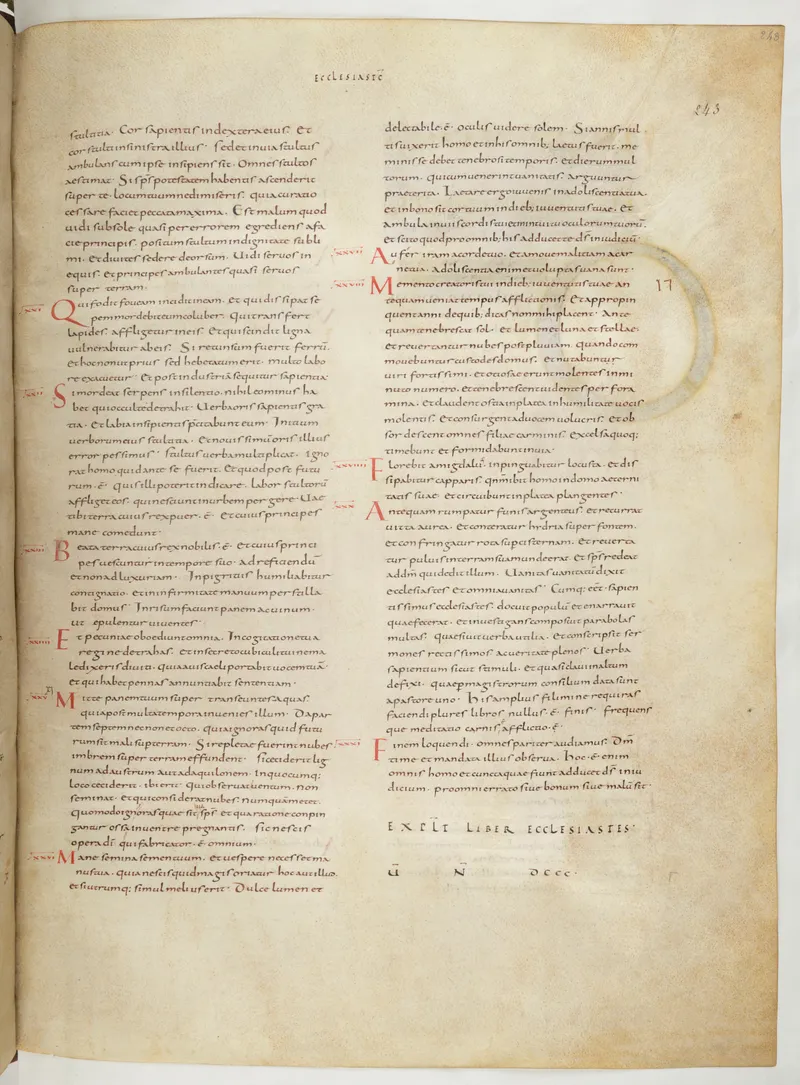 ECCLESIASTE
243
243
stultitia. Cor sapientis in dextera eius. Et
cor stulti in sinistra illius. sed et in uia stultus
ambulans cum ipse insipiens sit. Omnes stultos
aestimat. Si sps potestatem habentis ascenderit
super te. locum tuum ne dimiseris. quia curatio
cessare faciet peccata maxima. Est malum quod
uidi sub sole quasi per errorem egrediens a fa
cie principis. positum stultum in dignitate subli
mi. et diuites sedere deorsum. Uidi seruos in
equis. et principes ambulantes quasi seruos
super terram.
Qui fodit foueam incidit in eam. et qui dissipat se
pem mordebit eum coluber. Qui transfert
lapides affligetur in eis. et qui scindit ligna
uulnerabitur ab eis. Si retunsum fuerit ferrū.
et hoc non ut prius sed hebetatum erit. multo labo
re exacuetur. Et post industriā sequitur sapientia.
Si mordeat serpens in silentio. nihil eo minus ha
bet qui occulte detrahit. Uerba oris sapientis gra
tia. Et labia insipientis praecipitabunt eum. Initium
uerborum eius stultitia. Et nouissimū oris illius
error pessimus. stultus uerba multiplicat. Igno
rat homo quid ante se fuerit. et quod post futu
rum .ē. quis illi poterit indicare. labor stultorū
affliget eos. qui nesciunt in urbem pergere. Uae
tibi terra cuius rex puer .ē. Et cuius principes
mane comedunt.
Beata terra cuius rex nobilis .ē. et cuius princi
pes uescuntur in tempore suo. ad reficiendū
et non ad luxuriam. In pigritiis humiliabitur
contignatio. et in infirmitate manuum perstilla
bit domus. In risum faciunt panem ac uinum.
ut epulentur uiuentes.
Et pecuniae oboediunt omnia. In cogitatione tua
regi ne detrahas. et in secreto cubiculi tui ne ma
ledixeris diuiti. quia aues caeli portabit uocem tuā.
et qui habet pennas annuntiabit sententiam.
XI
Mitte panem tuum super transeuntes aquas.
quia post multa tempora inuenies illum. Da par
tem septem nec non et octo. quia ignoras quid futu
rum sit mali super terram. Si repletae fuerint nubes
imbrem super terram effundent. Si ceciderit lig
num ad austrum aut ad aquilonem. in quocumq;
loco ceciderit. ibi erit. Qui obseruat uentum. non
seminat. et qui considerat nubes numquā metet.
Quomodo ignoras quae sit sps et qua ratione conpin
gantur ossa in uentre pregnantis. sic nescis
opera di qui fabricator .ē. omnium.
xxvi
Mane semina sementuum. et uespere ne cesset ma
nus tua. quia nescis quid magis oriatur hoc aut illud.
et si utrumq; simul melius erit. Dulce lumen et
delectabile .ē. oculis uidere solem. Si annis mul
tis uixerit homo et in his omnib; laetus fuerit. me
minisse debet tenebrosi temporis. et dierum mul
torum. qui cum uenerint uanitatis. arguuntur
praeterita. Laetare ergo iuuenis in adoliscentia tua.
et in bono sit cor tuum in dieb; iuuentutis tuae. Et
ambula in uiis cordis tui et in intuitu oculorum tuorū.
et scito quod pro omnib; his adducet te ds in iudiciū.
Aufer iram a corde tuo. et amoue malitiam a car
ne tua. Adoliscentia enim et uoluptas uana sunt.
Memento creatoris tui in dieb; iuuentutis tuae. an
17
tequam ueniat tempus afflictionis. Et appropin
quent anni de quib; dicas non mihi placent. Ante
quam tenebrescat sol. et lumen et luna et stellae.
et reuertantur nubes post pluuiam. quando com
mouebuntur custodes domus. et nutabuntur
uiri fortissimi. et otiosae erunt molentes in mi
nuto numero. et tenebrescent uidentes per fora
mina. et claudent ostia in platea in humilitate uocis
molentis. Et consurgent ad uocem uolucris. et ob
sordescent omnes filiae carminis. excelsa quoq;
timebunt et formidabunt in uia.
Florebit amigdalū. inpinguabitur locusta. et dis
sipabitur capparis. qm ibit homo in domo aeterni
tatis suae. et circuibunt in platea plangentes.
Antequam rumpatur funis argenteus. et recurrat
uitta aurea. et conteratur hydria super fontem.
et confringatur rota super cisternam. et reuerta
tur puluis in terram suam unde erat. et sps redeat
ad dm qui dedit illum. Uanitas uanitatū dixit
ecclesiastes et omnia uanitas. Cumq; eet sapien
tissimus ecclesiastes. docuit populū et enarrauit
quae fecerat. et inuestigans composuit parabolas
multas. quaesiuit uerba utilia. et conscripsit ser
mones rectissimos ac ueritate plenos. Uerba
sapientium sicut stimuli. et quasi claui in altum
defixi. quae p magistrorum consilium data sunt
a pastore uno. his amplius fili mi ne requiras
faciendi plures libros nullus .ē. finis. frequens
que meditatio carnis afflictio .ē.
Finem loquendi. omnes pariter audiamus. Dm
time et mandata illius obserua. hoc .ē. enim
omnis homo et cuncta quae fiunt adducet ds in iu
dicium. pro omni errato siue bonum siue malū sit.
EXPLT LIBER ECCLESIASTES.
U N DCCC.